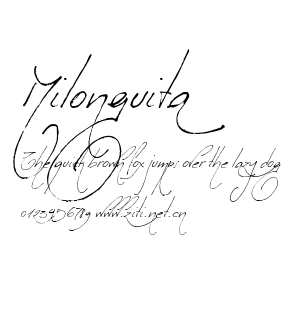 Milonguita
The quick brown fox jumps over the lazy dog
0123456789 www.ziti.net.cn